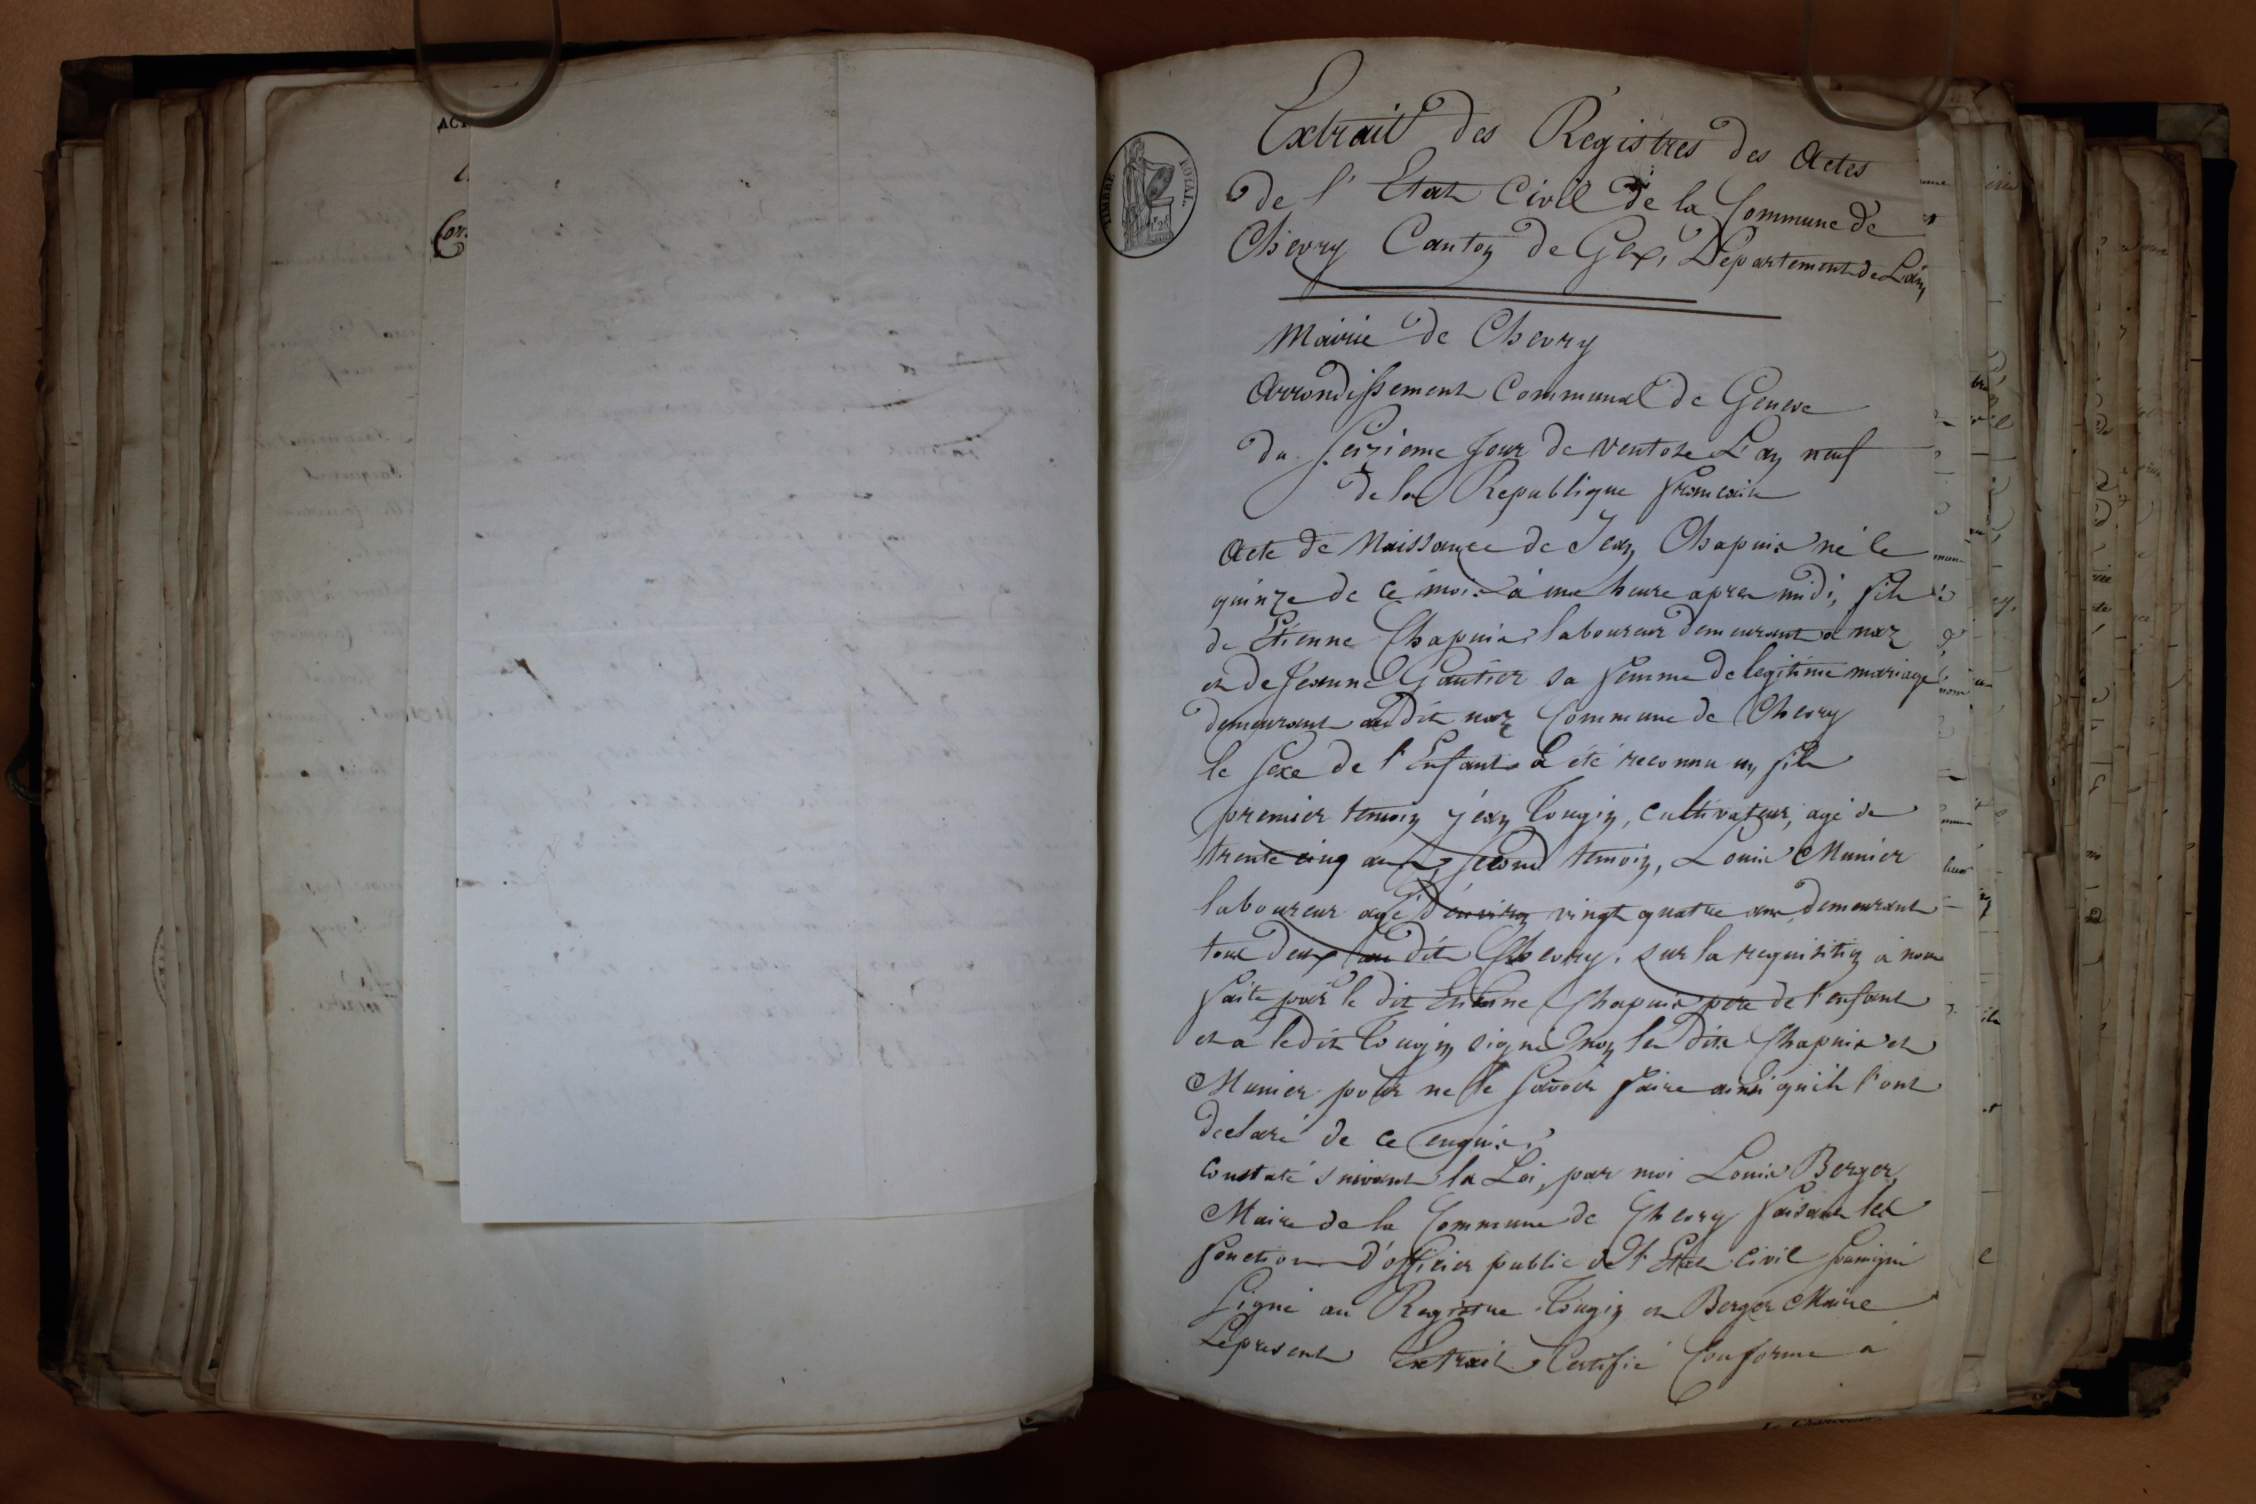 Extrait des Régistres des Actes
de l'Etat Civil de la Commune de
Chevry Canton de Gex, Département de L'ain
TIMBRE ROYAL
Mairie de Chevry
Arrondissement Communal de Geneve
du Seizieme Jour de Ventose L'an neuf
de la Republique francaise
Acte de Naissance de Jean Chapuis né le
quinze de ce mois à une heure apres midi, fils
de Etienne Chapuis, laboureur demeurant a naz
et de Jeanne Gautier sa femme de legitime mariage
demeurant audit naz Commune de Chevry
le sexe de l'Enfant a été reconnu un fils
premier temoin jean Tougin, Cultivateur, agé de
trente cinq ans, second temoin, Louis Munier
laboureur agé d'environ vingt quatre ans, demeurant
tous deux audit Chevry. sur la requisition à nous
faite par le dit Etienne Chapuis pere de l'enfant
et a ledit Tougin signé non les dits Chapuis et
Munier pour ne le savoir faire ainsi qu'ils l'ont
declaré de ce enquis.
Constaté suivant la Loi, par moi Louis Berger,
Maire de la Commune de Chevry faisant les
fonctions d'officier public de l'Etat Civil soussigné
Signé au Registre Tougin et Berger Maire
Le present Extrait Certifié Conforme a